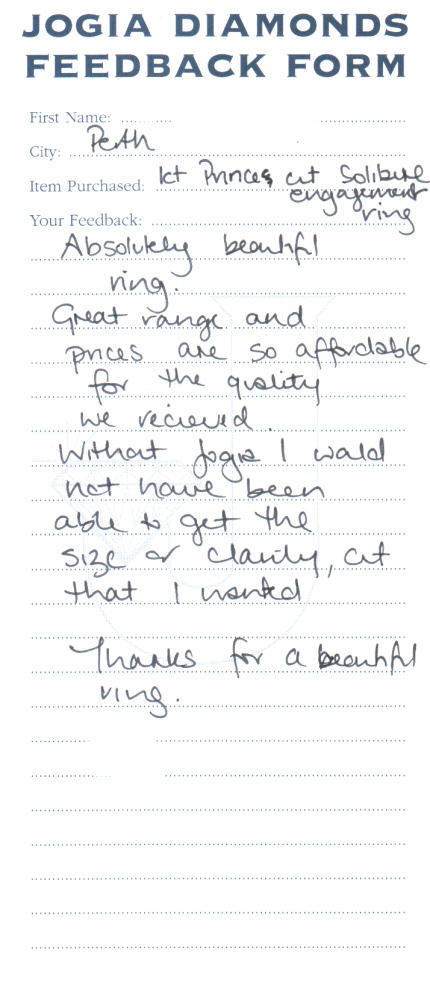 JOGIA DIAMONDS
FEEDBACK FORM
First Name:
City: Perth
Item Purchased: 1ct Princes cut Solitire
engagement
ring
Your Feedback:
Absolutely beautiful
ring.
Great range and
prices are so affordable
for the quality
we recieved.
Without Jogia I would
not have been
able to get the
size or clarity, cut
that I wanted
Thanks for a beautiful
ring.